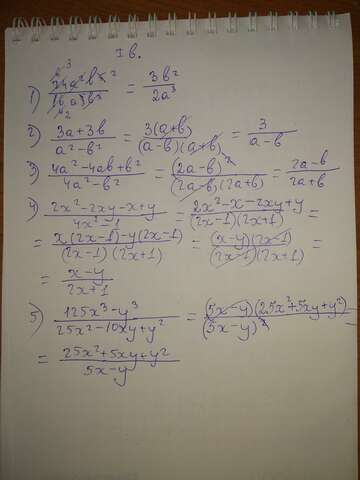 I в.
1) 24a²b⁴ ² / 16a⁵b² = 3b² / 2a³
2) 3a+3b / a²-b² = 3(a+b) / (a-b)(a+b) = 3 / a-b
3) 4a²-4ab+b² / 4a²-b² = (2a-b)² / (2a-b)(2a+b) = 2a-b / 2a+b
4) 2x²-2xy-x+y / 4x²-1 = 2x²-x-2xy+y / (2x-1)(2x+1) =
= x(2x-1)-y(2x-1) / (2x-1)(2x+1) = (x-y)(2x-1) / (2x-1)(2x+1) =
= x-y / 2x+1
5) 125x³-y³ / 25x²-10xy+y² = (5x-y)(25x²+5xy+y²) / (5x-y)² =
= 25x²+5xy+y² / 5x-y